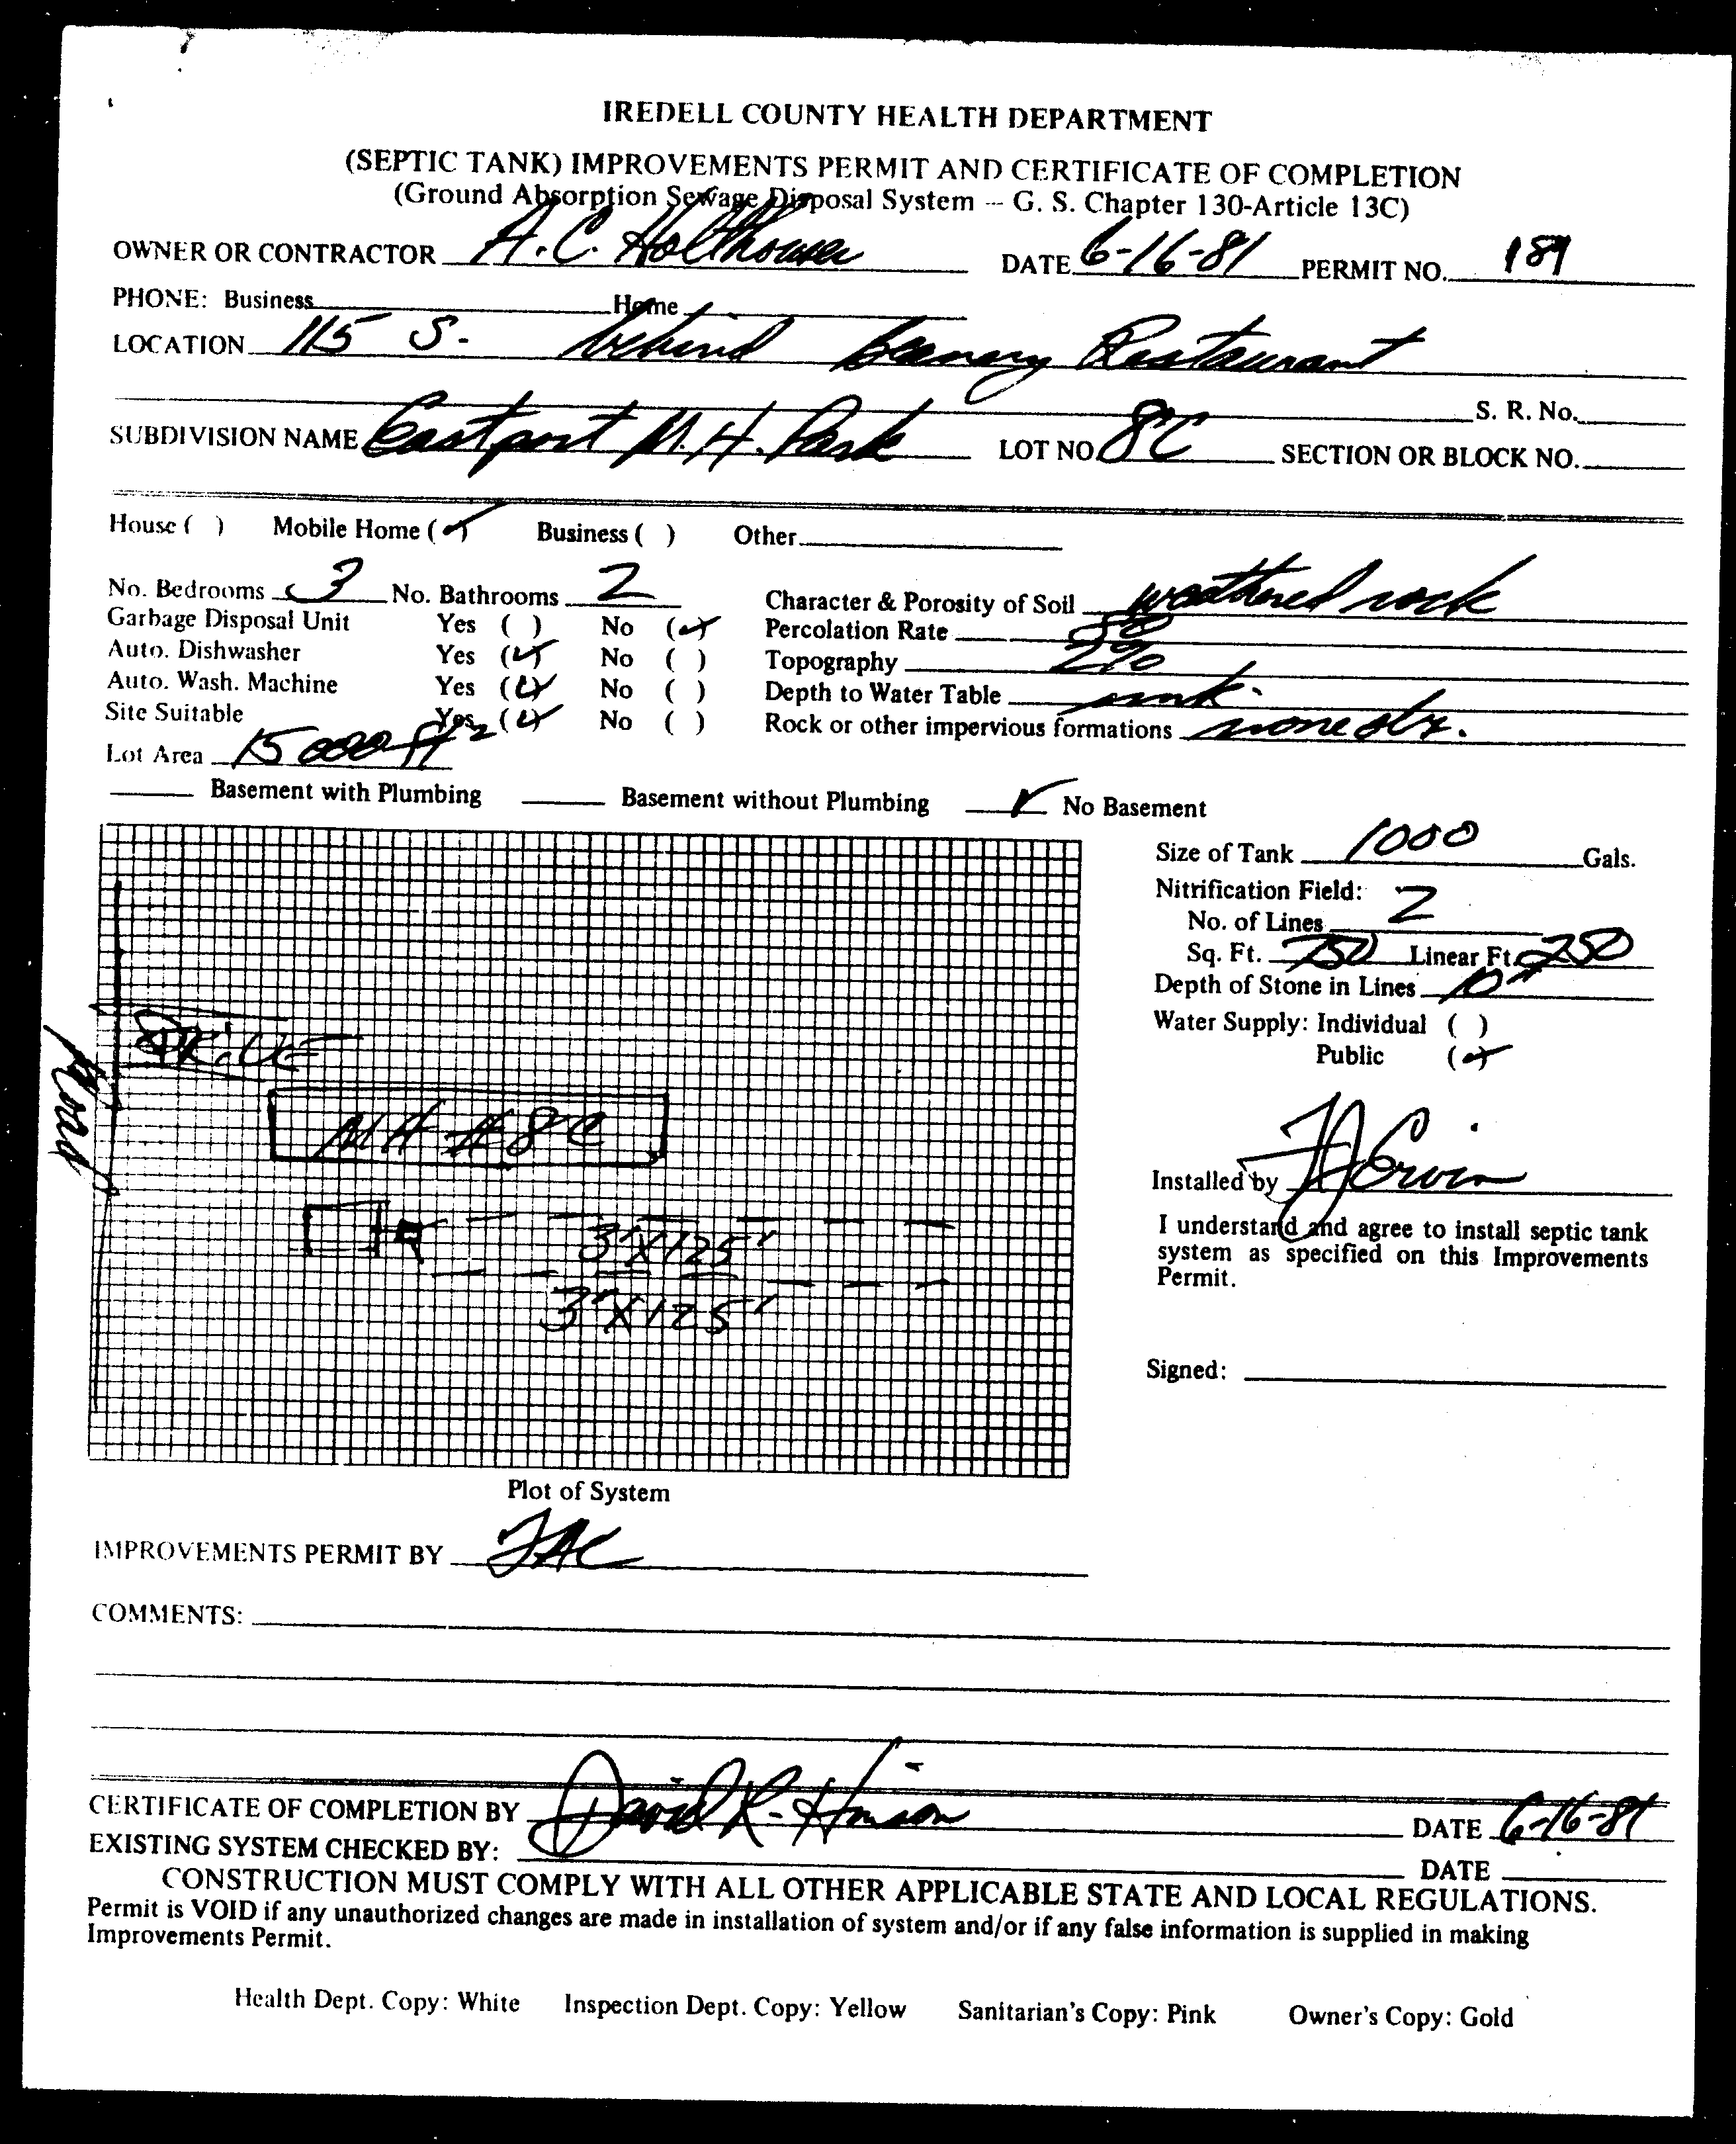 IREDELL COUNTY HEALTH DEPARTMENT
(SEPTIC TANK) IMPROVEMENTS PERMIT AND CERTIFICATE OF COMPLETION
(Ground Absorption Sewage Disposal System -- G. S. Chapter 130-Article 13C)
OWNER OR CONTRACTOR A.C. Holthouser DATE 6-16-81 PERMIT NO. 189
PHONE: Business Home
LOCATION 115 S. behind Restaurant
S. R. No.
SUBDIVISION NAME Eastport M.H. Park LOT NO. 8C SECTION OR BLOCK NO.
House ( ) Mobile Home (✓) Business ( ) Other
No. Bedrooms 3 No. Bathrooms 2 Character & Porosity of Soil weathered rock
Garbage Disposal Unit Yes ( ) No (✓) Percolation Rate
Auto. Dishwasher Yes (✓) No ( ) Topography 2%
Auto. Wash. Machine Yes (✓) No ( ) Depth to Water Table unk.
Site Suitable Yes (✓) No ( ) Rock or other impervious formations none obs.
Lot Area 15000 ft2
Basement with Plumbing Basement without Plumbing ✓ No Basement
Size of Tank 1000 Gals.
Nitrification Field:
No. of Lines 2
Sq. Ft. 750 Linear Ft. 250
Depth of Stone in Lines 10"
Water Supply: Individual ( )
Public (✓)
Road
DRIVE
MH #8C
3'X125'
3'X125'
Installed by Ervin
I understand and agree to install septic tank
system as specified on this Improvements
Permit.
Signed:
Plot of System
IMPROVEMENTS PERMIT BY
COMMENTS:
CERTIFICATE OF COMPLETION BY David R. Hinson DATE 6-16-81
EXISTING SYSTEM CHECKED BY: DATE
CONSTRUCTION MUST COMPLY WITH ALL OTHER APPLICABLE STATE AND LOCAL REGULATIONS.
Permit is VOID if any unauthorized changes are made in installation of system and/or if any false information is supplied in making
Improvements Permit.
Health Dept. Copy: White Inspection Dept. Copy: Yellow Sanitarian's Copy: Pink Owner's Copy: Gold